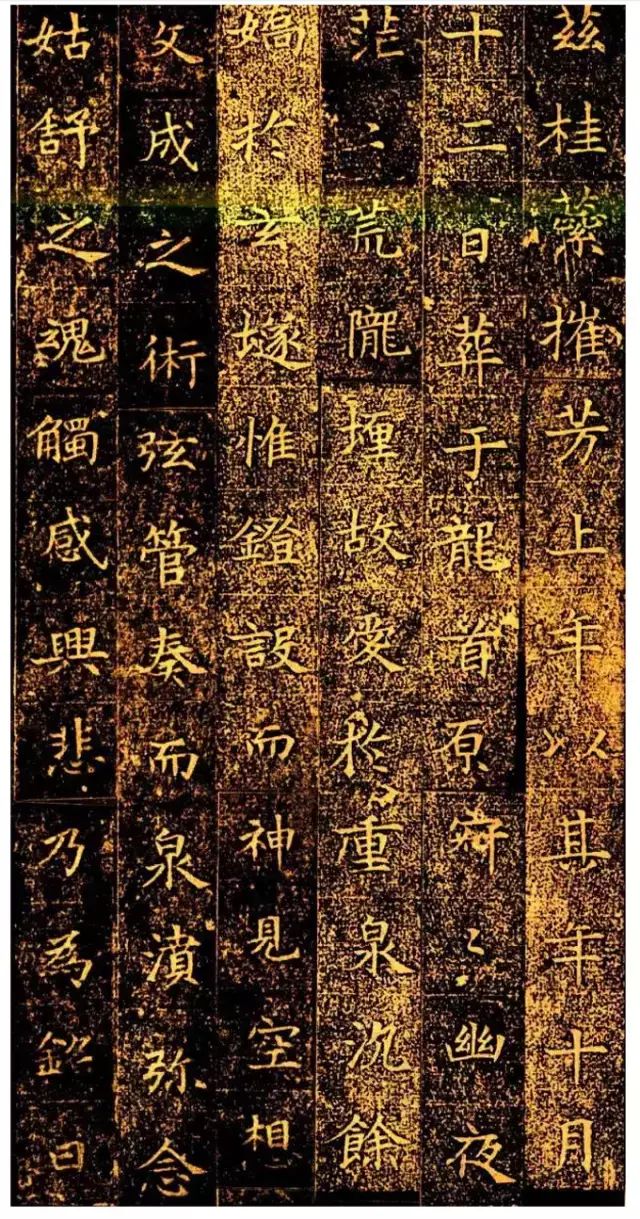 兹桂蘂摧芳上年以其年十月
十二日葬于龍首原寂〻幽夜
茫〻荒隴埋故愛於重泉沉餘
嬌於玄隧惟鐙設而神見空想
文成之術弦管奏而泉濆弥念
姑舒之魂觸感興悲乃為銘曰